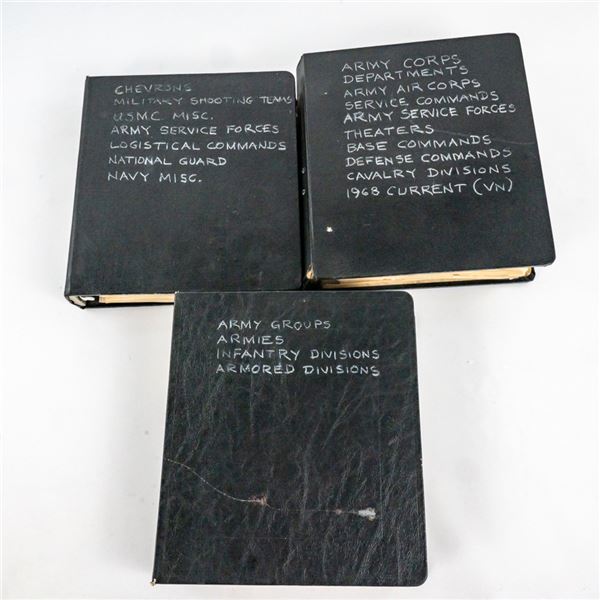 CHEVRONS
MILITARY SHOOTING TEAMS
U.S.M.C. MISC.
ARMY SERVICE FORCES
LOGISTICAL COMMANDS
NATIONAL GUARD
NAVY MISC.
ARMY CORPS
DEPARTMENTS
ARMY AIR CORPS
SERVICE COMMANDS
ARMY SERVICE FORCES
THEATERS
BASE COMMANDS
DEFENSE COMMANDS
CAVALRY DIVISIONS
1968 CURRENT (VN)
ARMY GROUPS
ARMIES
INFANTRY DIVISIONS
ARMORED DIVISIONS